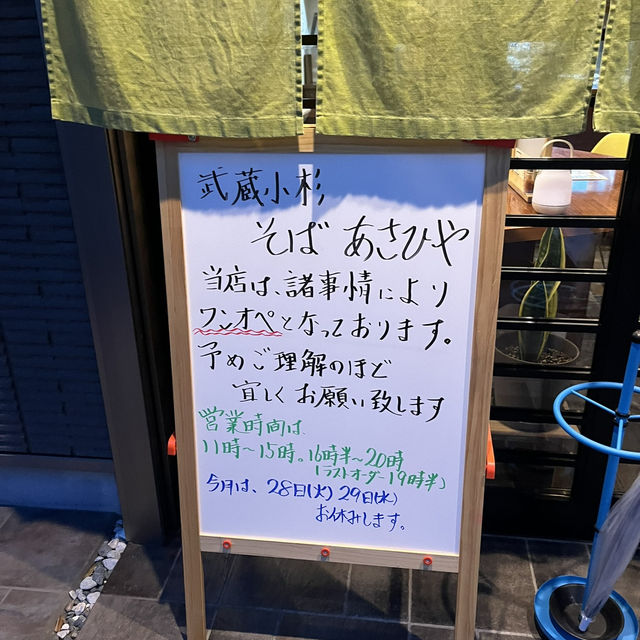 武蔵小杉
そば あさひや
当店は、諸事情により
ワンオペとなっております。
予めご理解のほど
宜しくお願い致します
営業時間は
11時〜15時。16時半〜20時
(ラストオーダー19時半)
今月は、28日(火) 29日(水)
お休みします。